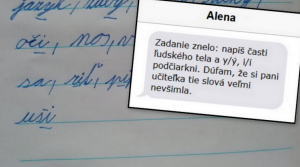 jazyk, zuby,
oči, nos,
sa, riť, pi
uši
Alena
Zadanie znelo: napíš časti
ľudského tela a y/ý, i/í
podčiarkni. Dúfam, že si pani
učiteľka tie slová veľmi
nevšimla.